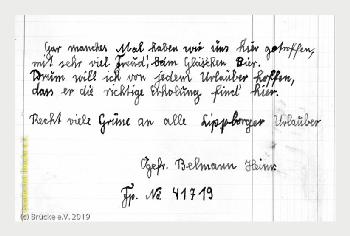 Gar manches Mal haben wir uns hier getroffen,
mit sehr viel Freud', beim Gläschen Bier.
Drum will ich von jedem Urlauber hoffen,
dass er die richtige Erholung find' hier.
Recht viele Grüße an alle Lippborger Urlauber
Gefr. Belmann Heinr.
Fp. No 41719
(c) Brücke e.V. 2019